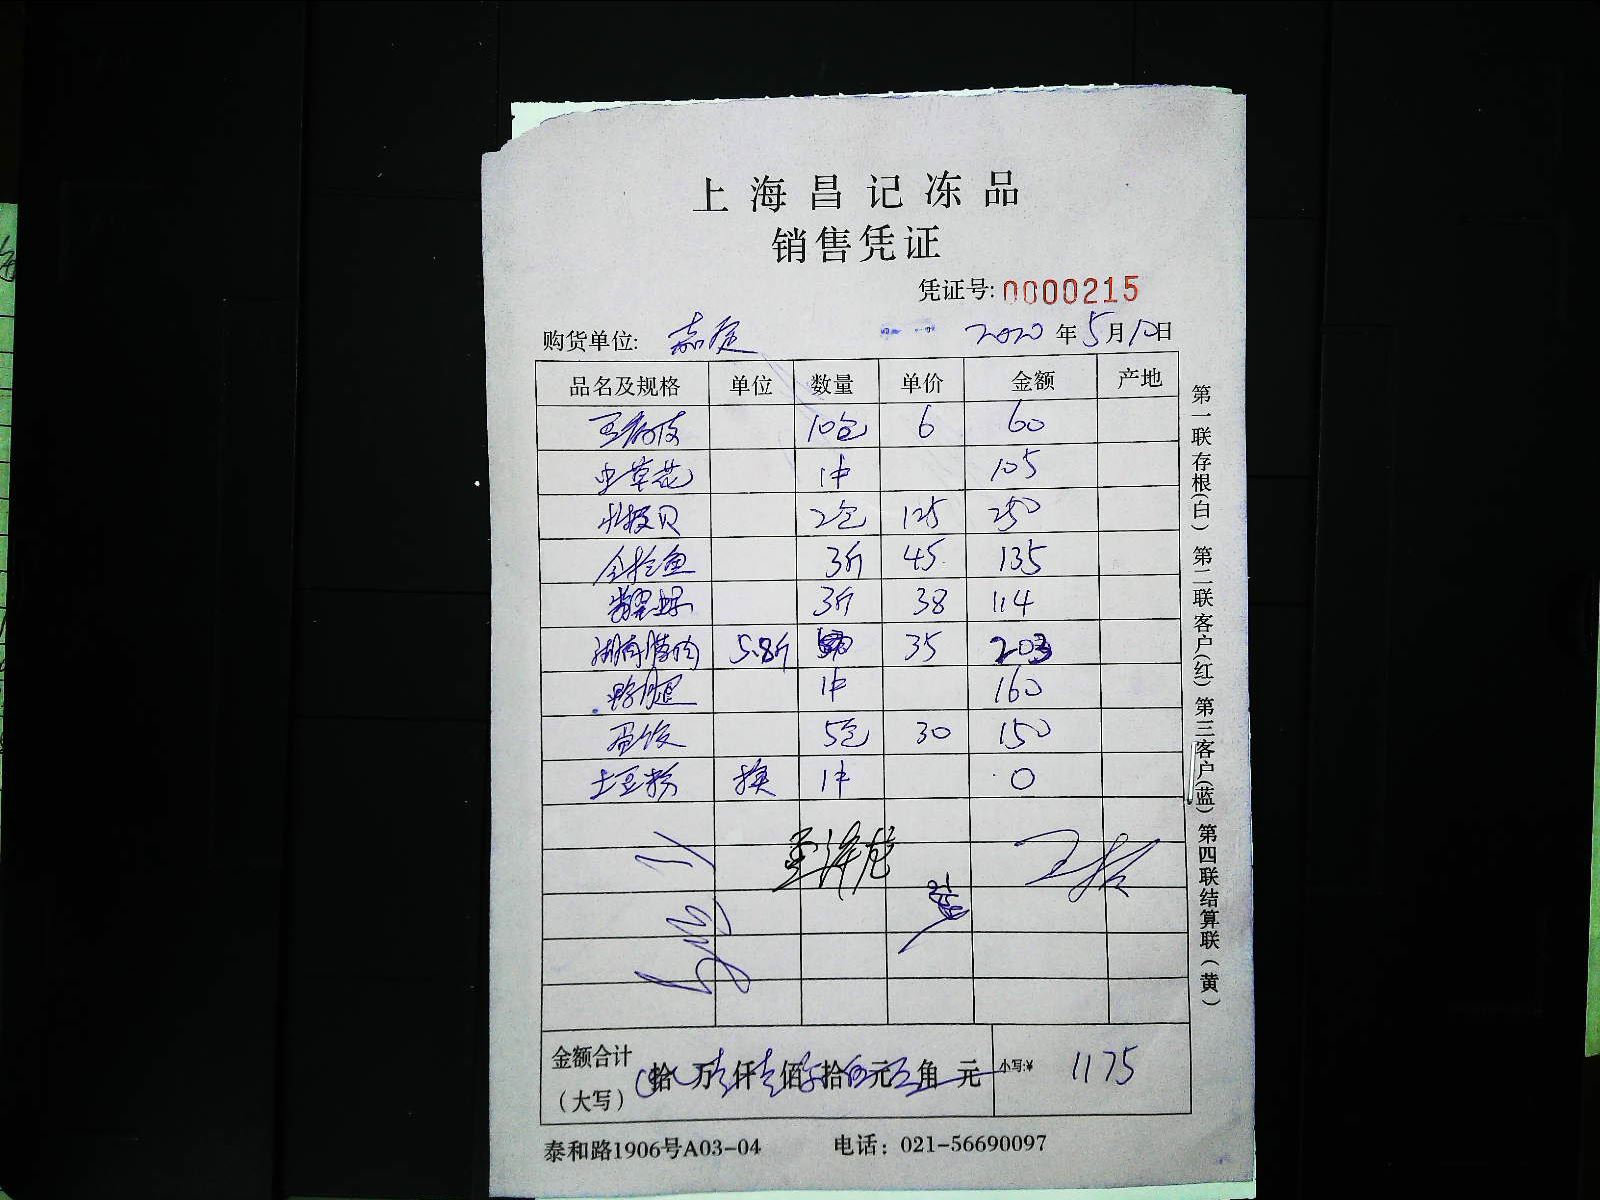 上海昌记冻品
销售凭证
凭证号: 0000215
购货单位: 嘉定 2020年5月10日
品名及规格 单位 数量 单价 金额 产地
10包 6 60
虫草花 1件 105
北极贝 2包 125 250
3斤 45 135
3斤 38 114
湖南腊肉 5.8斤 35 203
鸭腿 1件 160
蛋饺 5包 30 150
土豆粉 换 1件 0
王海龙
金额合计
(大写) 拾 万 仟 佰 拾 元 角 元 小写:¥ 1175
泰和路1906号A03-04 电话: 021-56690097
第一联存根(白) 第二联客户(红) 第三客户(蓝) 第四联结算联(黄)